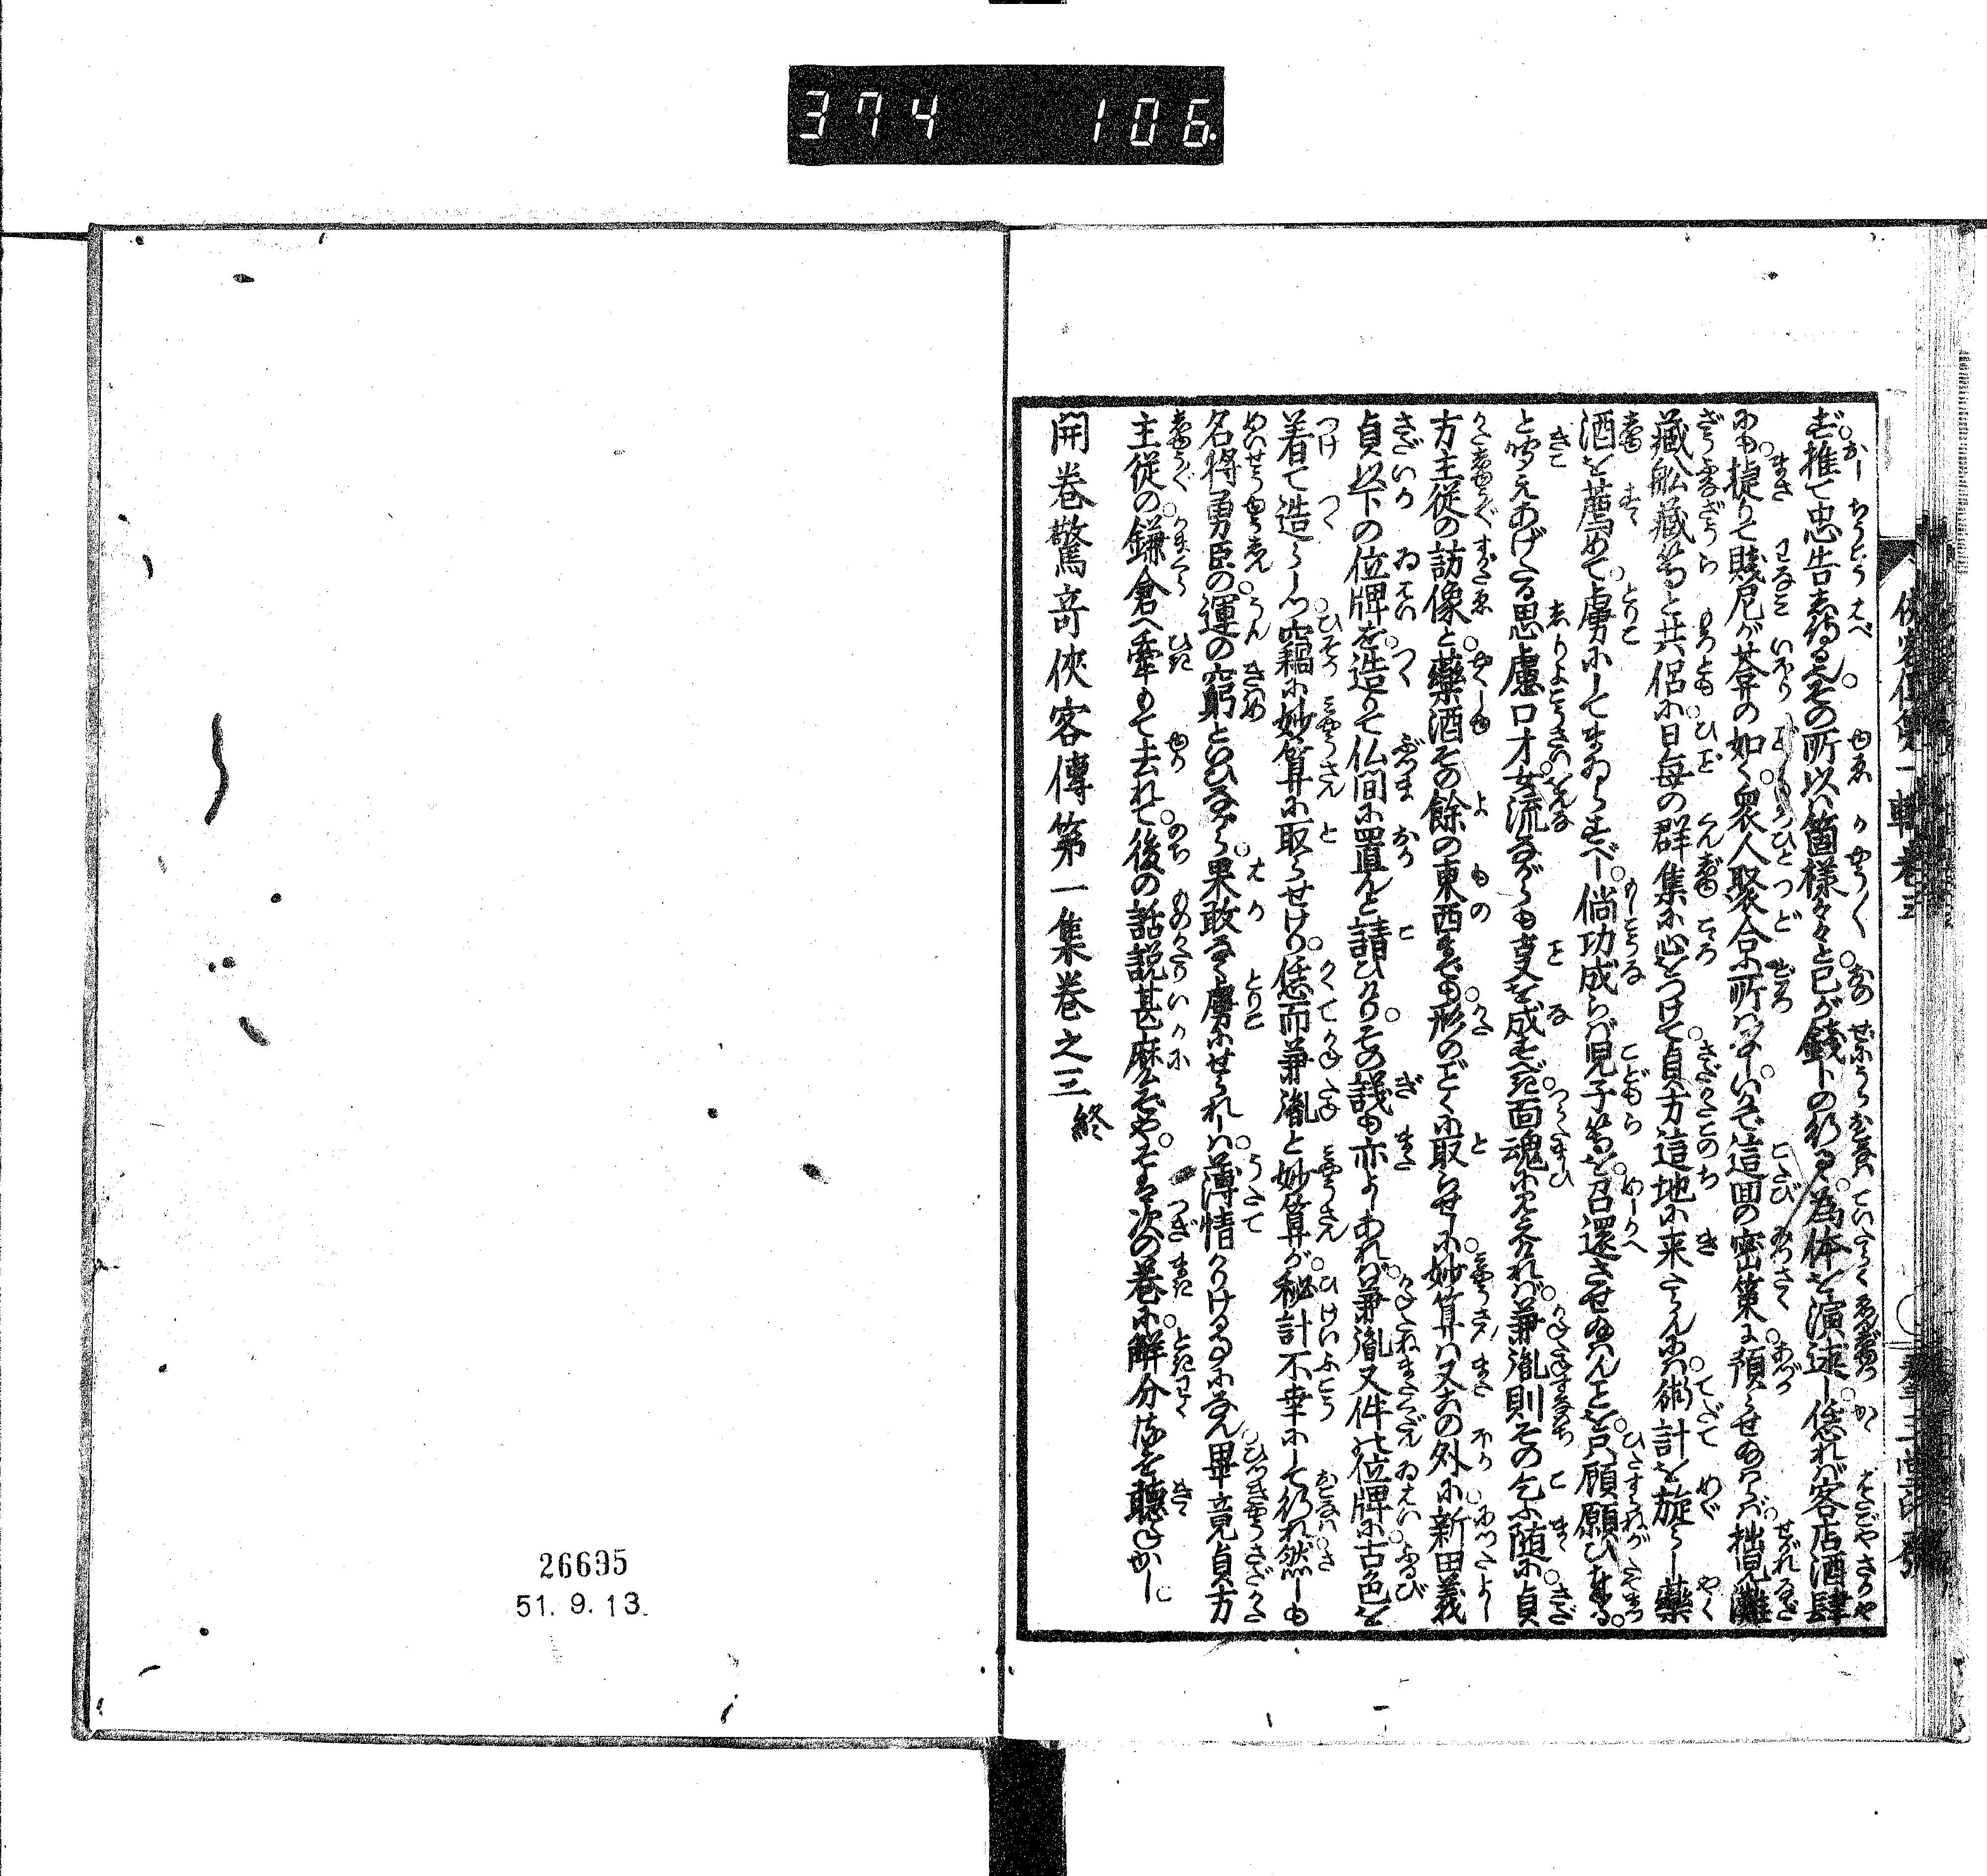 374 106.
ず。推て忠告志侍るべし。その所以ハ箇様々々と己が銭卜の行る。為体を演述し。恁れバ客店酒肆
にも。捷りて賤尼が荅の如く。衆人聚合ふ所ハなし。いかで這回の密策に。預らせあらバ。拙児灘
藏舩藏等と共侶に。日毎の群集に心をつけて。貞方這地に来たらんにハ。術計を旋らし。藥
酒を薦めて。虜にしてまゐらすべし。倘功成らバ児子等を。召還させ給ハんことを。只顧願ひ奉る。
と聞えあげたる思慮口才。女流ながらも事を成すべき。面魂に見えけれバ。兼胤則その乞ふ随に。貞
方主従の訪像と。藥酒その餘の東西までも。形のごとくに取らせしに。妙算ハ又この外に。新田義
貞以下の位牌を。造りて仏間に置んと請ひけり。その議も亦よしあれバ。兼胤又件の位牌に。古色を
着て造らし。窃に妙算に取らせけり。恁而兼胤と妙算が。秘計不幸にして行れ。然しも
名将勇臣の。運の窮といひながら。果敢なく虜にせられしハ。薄情かりける事になん。畢竟貞方
主従の。鎌倉へ牽もて去れて。後の話説甚麼ぞや。そは次の巻に。解分るを聴ねかし。
開巻驚竒俠客傳第一集巻之三終
26695
51.9.13.